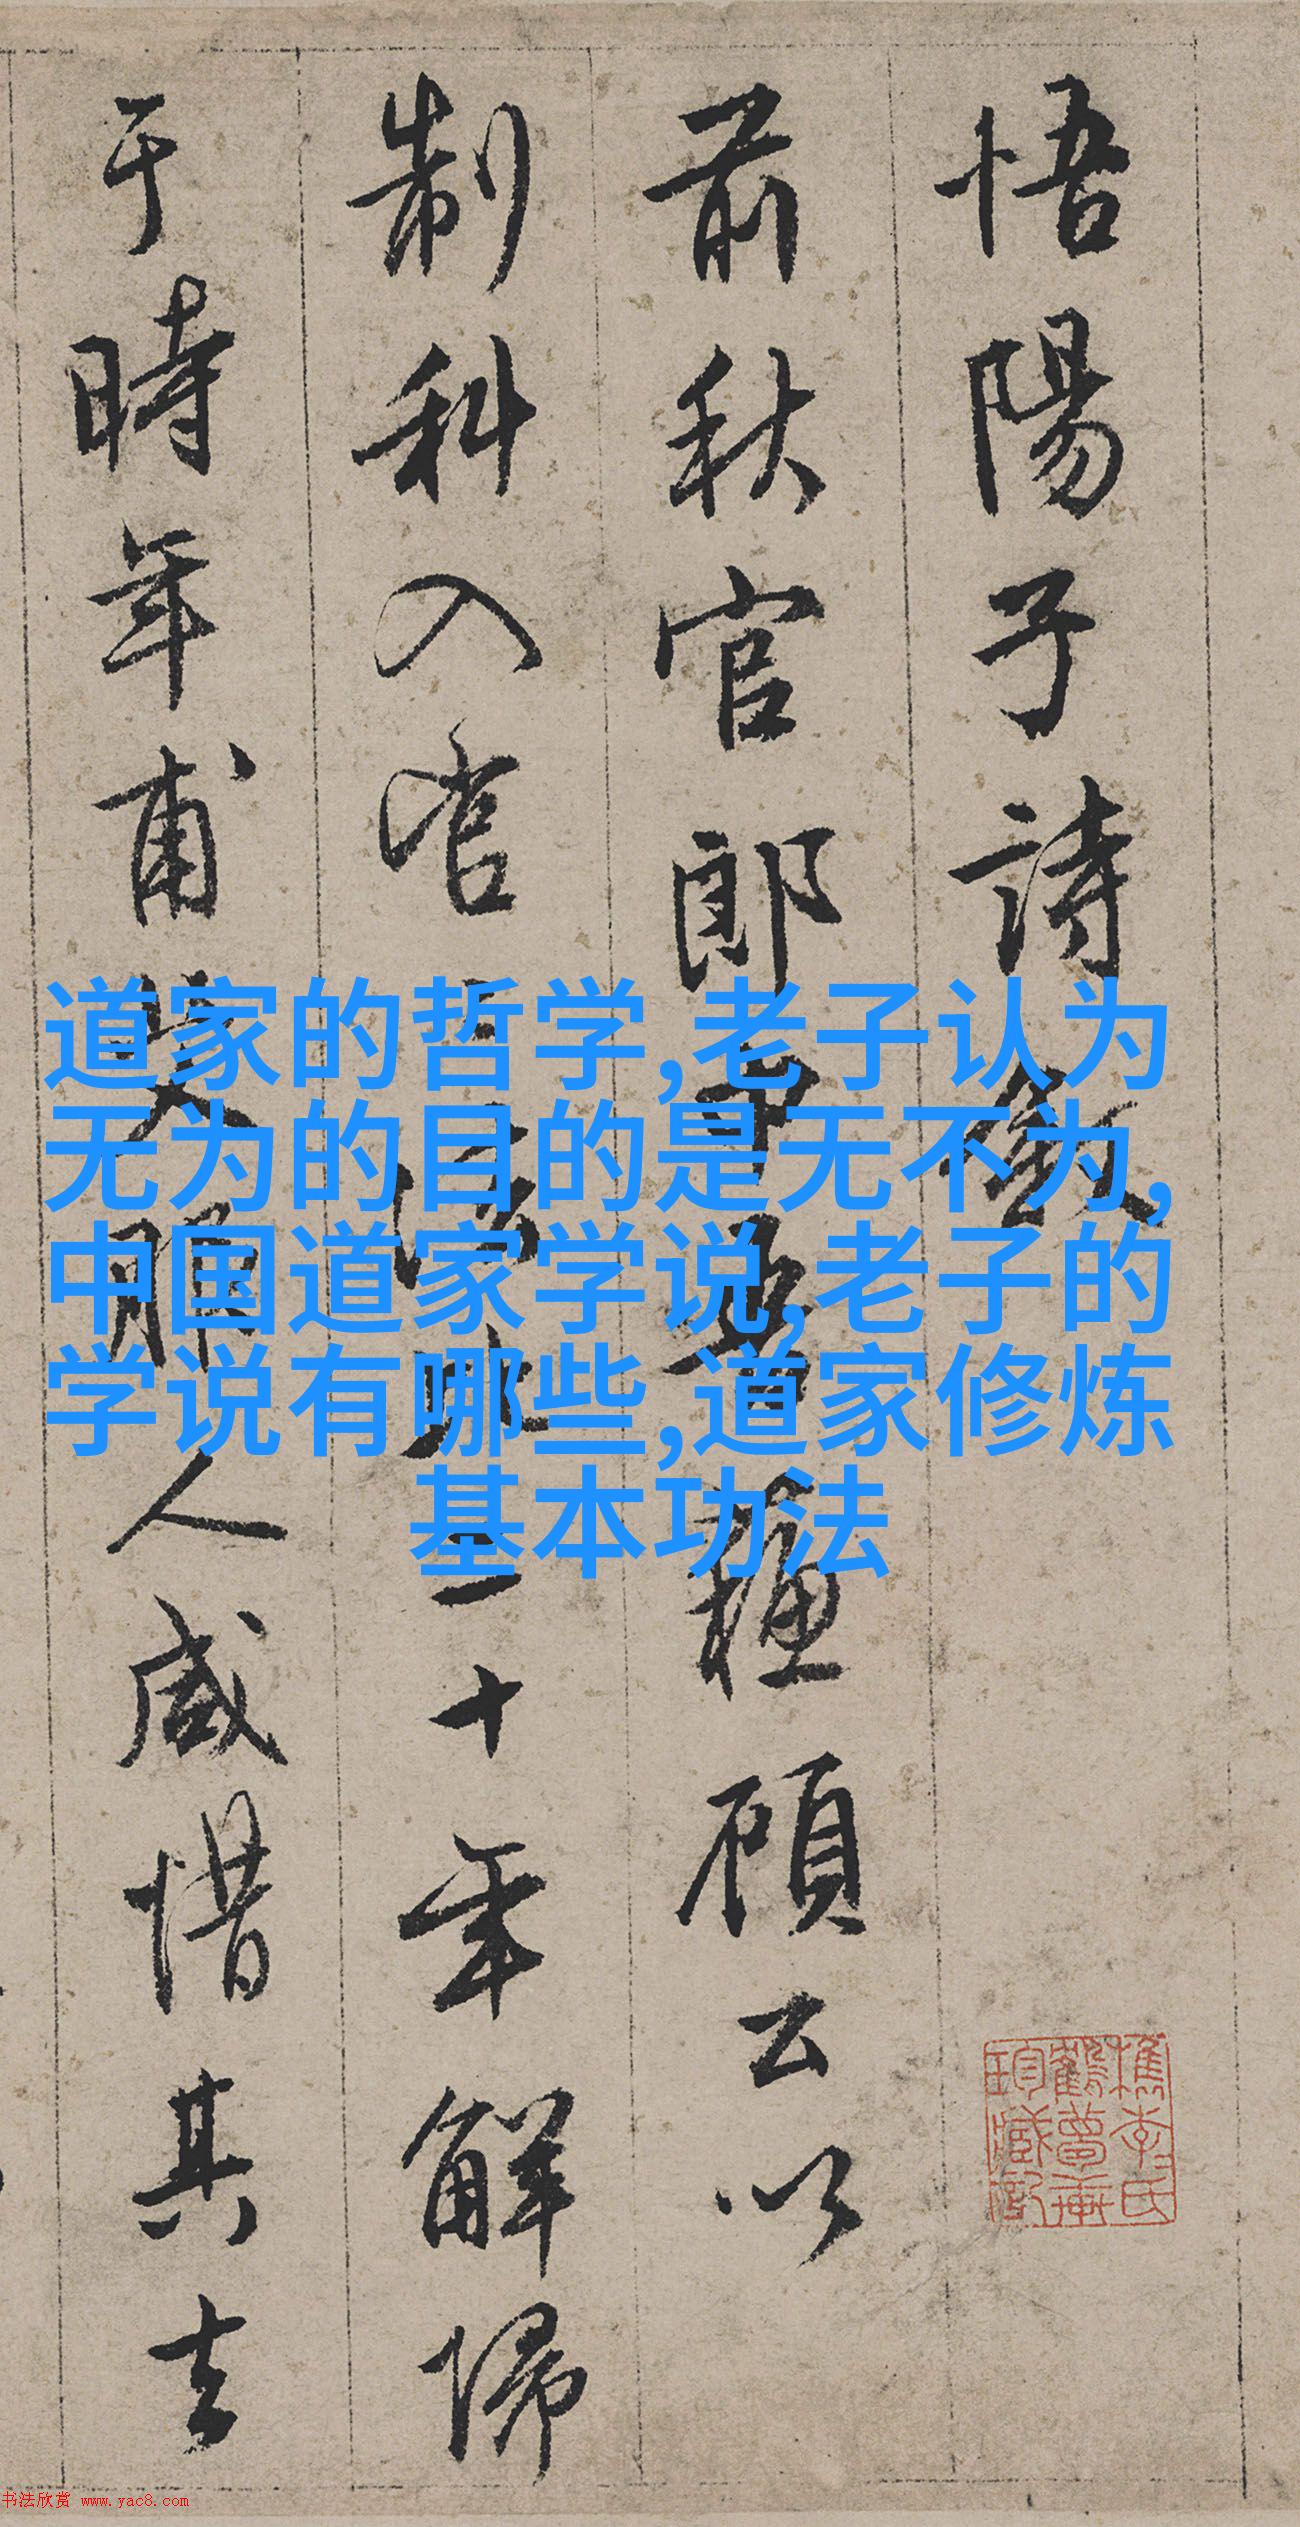 悟陽子詩敘
前秋官郎中
顧公以
制科入官
三十年解歸
于時年甫
人咸惜其去
道家的哲学,老子认为
无为的目的是无不为,
中国道家学说,老子的
学说有哪些,道家修炼
基本功法
书法欣赏 www.yac8.com